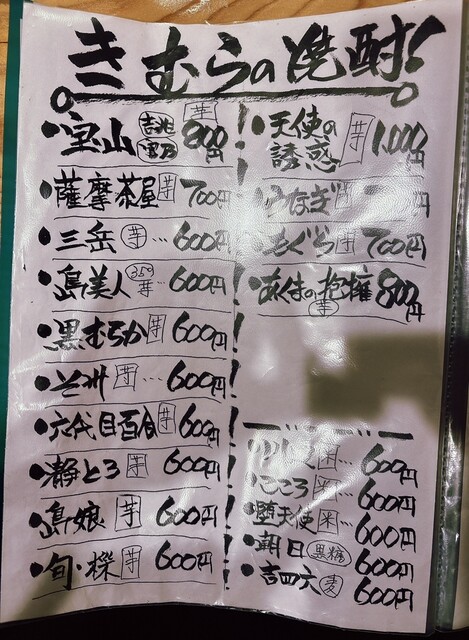 きむらの焼酎!
・宝山 吉兆 芋 800円
・薩摩茶屋 芋 700円
・三岳 芋… 600円
・島美人 芋… 600円
・黒むらか 芋 600円
芋… 600円
・六代目百合 芋 600円
・瀞とろ 芋 600円
・島娘 芋 600円
・旬・ 芋 600円
・天使の誘惑 芋 1,000円
うなぎ 芋 円
もぐら 芋 700円
あくまの抱擁 芋 800円
米… 600円
こころ 米… 600円
・堕天使 米… 600円
・朝日 黒糖 600円
・吉四六 麦 600円